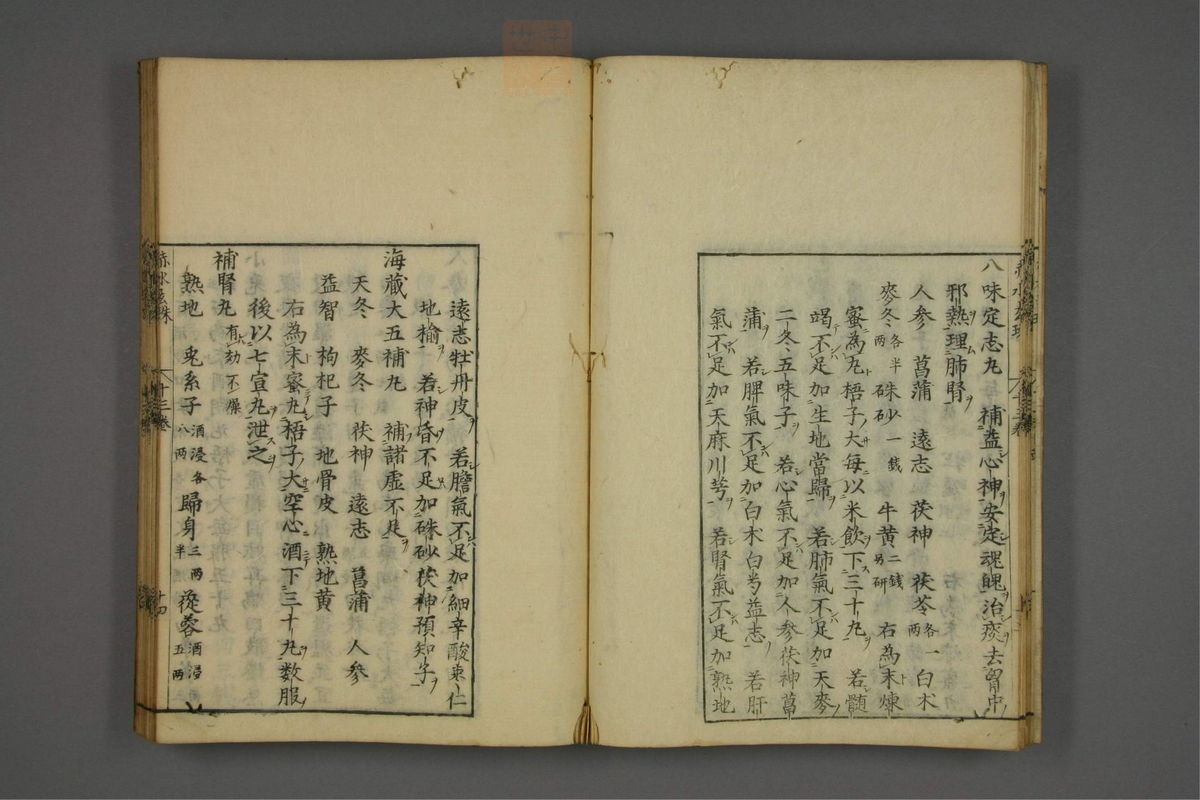 八味定志丸　補益心神安定魂魄治痰去胷中
邪熱理肺腎
人參　菖蒲　遠志　茯神　茯苓各一兩　白朮
麥冬各半兩　硃砂一錢　牛黄二錢另研　右為末煉
蜜為丸梧子大每以米飲下三十丸　若髓
竭不足加生地當歸　若肺氣不足加天麥
二冬五味子　若心氣不足加人參茯神菖
蒲　若脾氣不足加白朮白芍益志　若肝
氣不足加天麻川芎　若腎氣不足加熟地
遠志牡丹皮　若膽氣不足加細辛酸棗仁
地榆　若神昏不足加硃砂茯神預知子
海藏大五補丸　補諸虛不足
天冬　麥冬　茯神　遠志　菖蒲　人參
益智　枸杞子　地骨皮　熟地黄
右為末蜜丸梧子大空心酒下三十丸数服
後以七宣丸泄之
補腎丸有効不燥
熟地　兎糸子酒浸各八兩　歸身三兩半　蓯蓉酒浸五兩
赤水玄珠　十三卷　十四